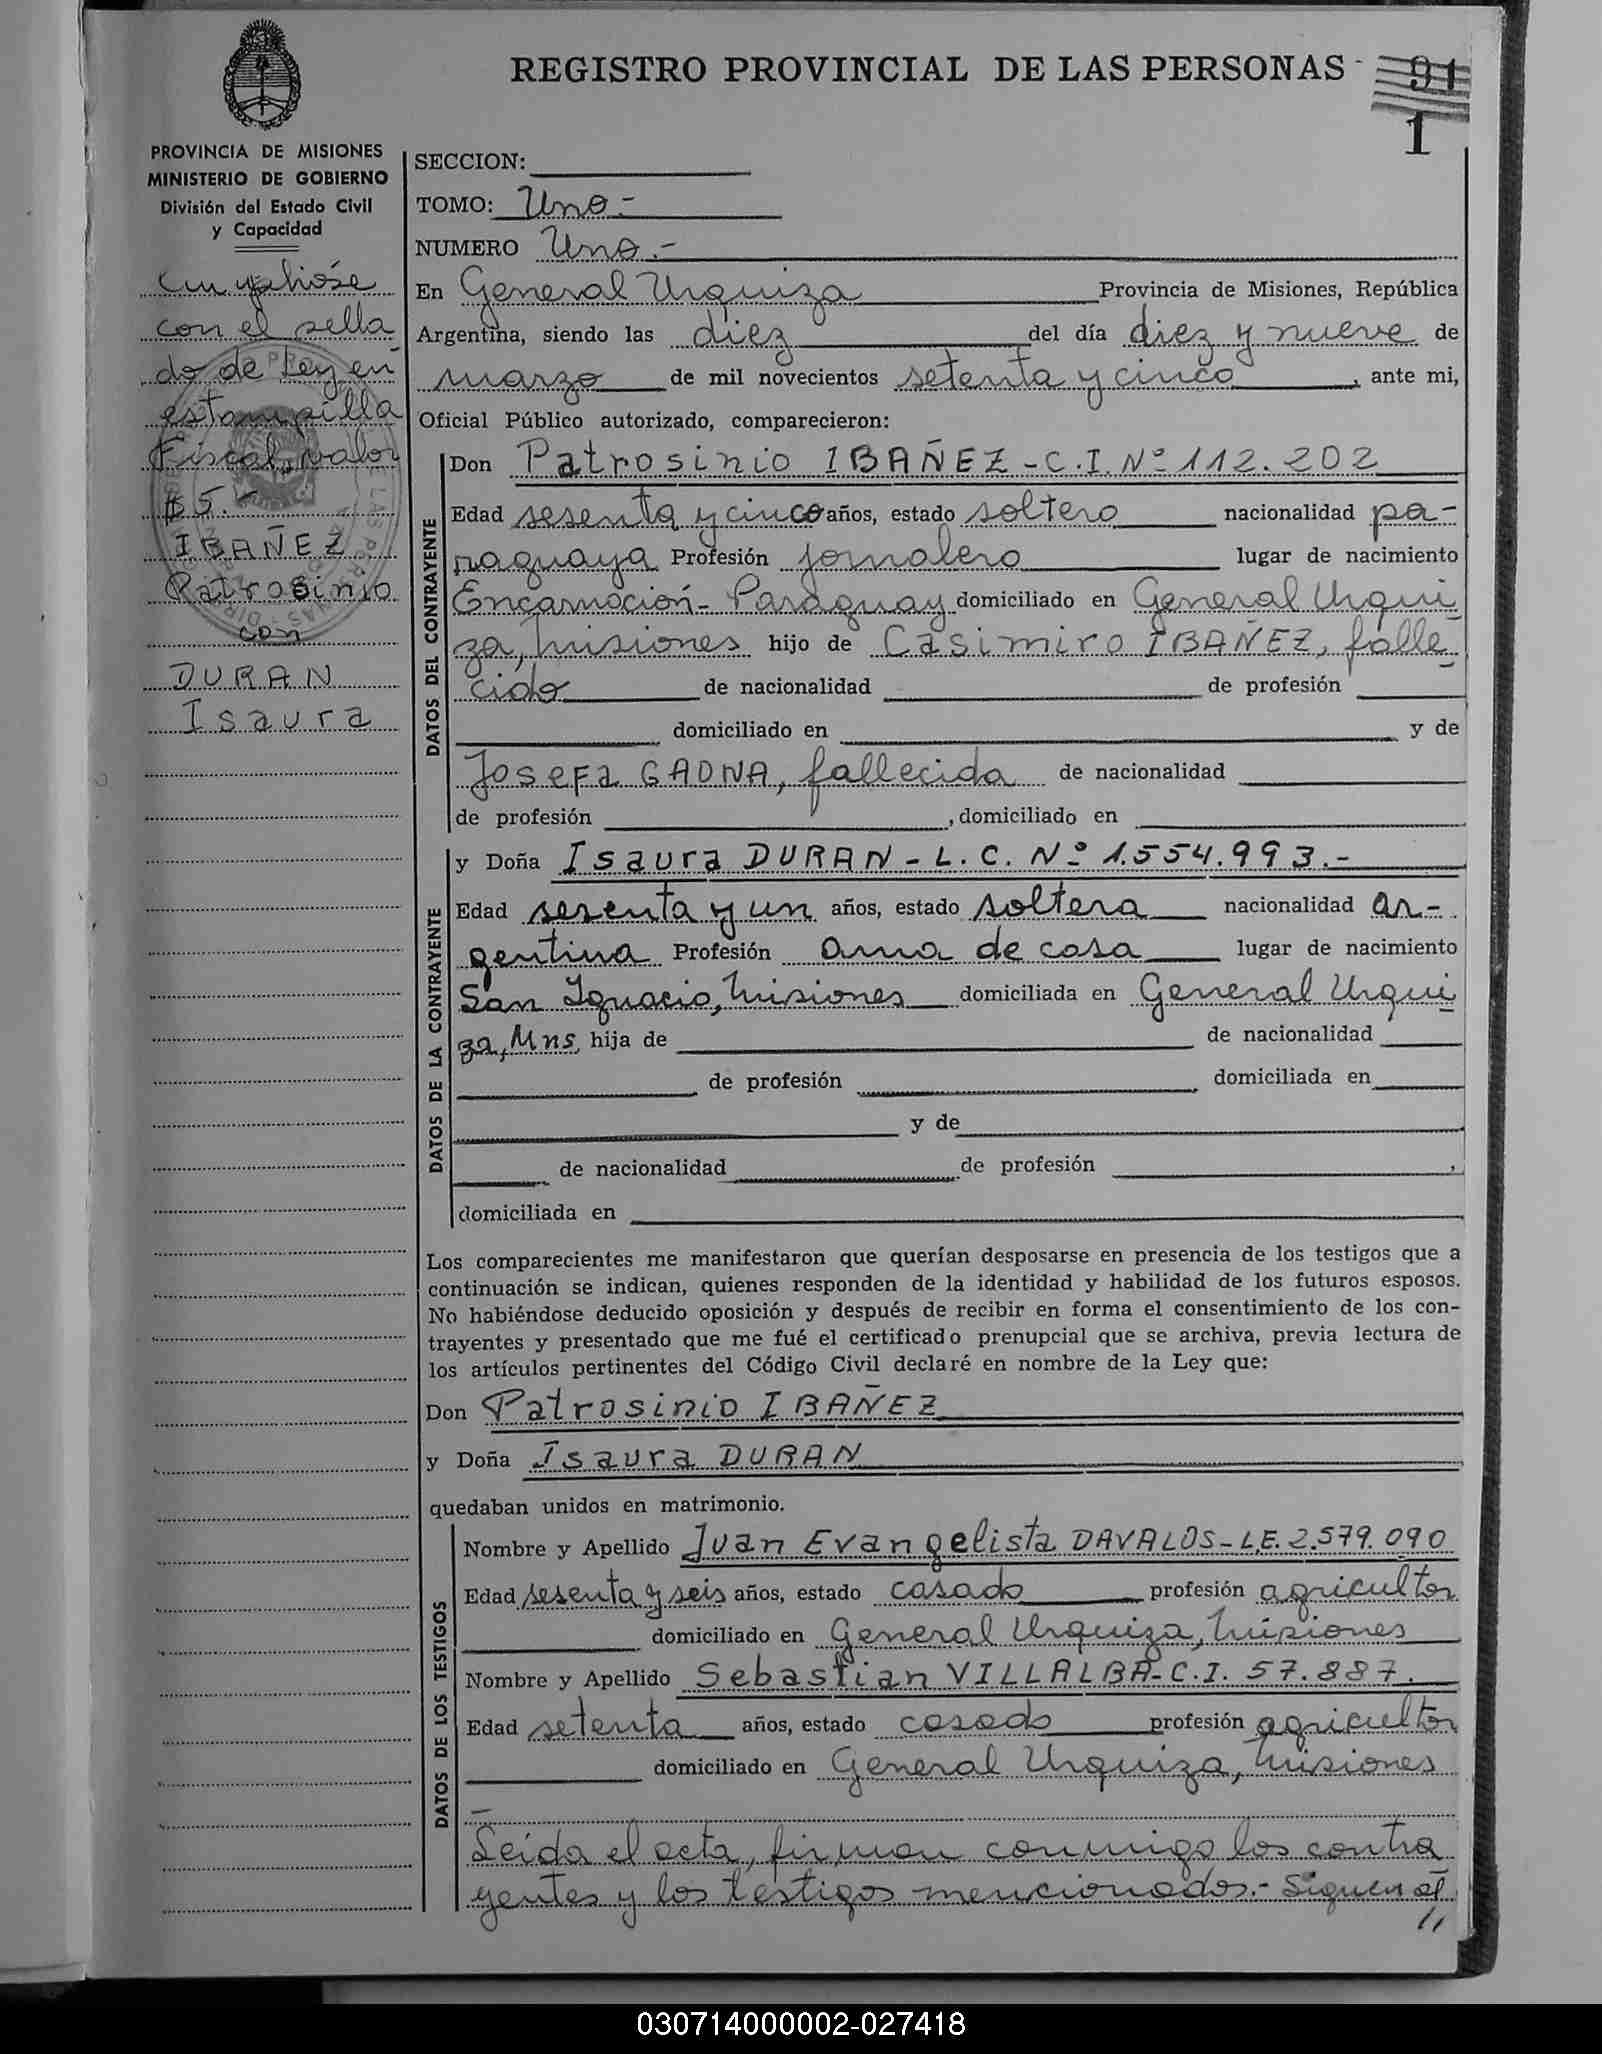 REGISTRO PROVINCIAL DE LAS PERSONAS
91
1
PROVINCIA DE MISIONES
MINISTERIO DE GOBIERNO
División del Estado Civil
y Capacidad
Cumplióse
con el sella
do de Ley en
estampilla
Fiscal, valor
$ 5.-
IBAÑEZ
Patrosinio
con
DURAN
Isaura
SECCION:
TOMO: Uno-
NUMERO Uno.-
En General Urquiza Provincia de Misiones, República
Argentina, siendo las diez del día diez y nueve de
marzo de mil novecientos setenta y cinco, ante mi,
Oficial Público autorizado, comparecieron:
DATOS DEL CONTRAYENTE
Don Patrosinio IBAÑEZ-C.I.Nº 112.202
Edad sesenta y cinco años, estado soltero nacionalidad pa-
raguaya Profesión jornalero lugar de nacimiento
Encarnación-Paraguay domiciliado en General Urqui
za, Misiones hijo de Casimiro IBAÑEZ, falle-
cido de nacionalidad de profesión
domiciliado en y de
Josefa GAONA, fallecida de nacionalidad
de profesión , domiciliado en
DATOS DE LA CONTRAYENTE
y Doña Isaura DURAN-L.C. Nº 1.554.993.-
Edad sesenta y un años, estado soltera nacionalidad ar-
gentina Profesión ama de casa lugar de nacimiento
San Ignacio, Misiones domiciliada en General Urqui
za, Mns, hija de de nacionalidad
de profesión domiciliada en
y de
de nacionalidad de profesión ,
domiciliada en
Los comparecientes me manifestaron que querían desposarse en presencia de los testigos que a
continuación se indican, quienes responden de la identidad y habilidad de los futuros esposos.
No habiéndose deducido oposición y después de recibir en forma el consentimiento de los con-
trayentes y presentado que me fué el certificado prenupcial que se archiva, previa lectura de
los artículos pertinentes del Código Civil declaré en nombre de la Ley que:
Don Patrosinio IBAÑEZ
y Doña Isaura DURAN
quedaban unidos en matrimonio.
DATOS DE LOS TESTIGOS
Nombre y Apellido Juan Evangelista DAVALOS-L.E. 2.579.090
Edad sesenta y seis años, estado casado profesión agricultor
domiciliado en General Urquiza, Misiones
Nombre y Apellido Sebastian VILLALBA-C.I. 57.887.
Edad setenta años, estado casado profesión agricultor
domiciliado en General Urquiza, Misiones
Leída el acta, firman conmigo los contra
yentes y los testigos mencionados.- Siguen al
//
030714000002-027418